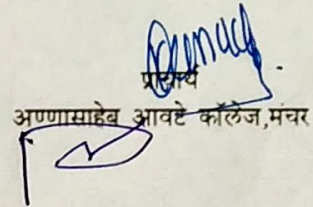 प्राचार्य
अण्णासाहेब आवटे कॉलेज,मंचर